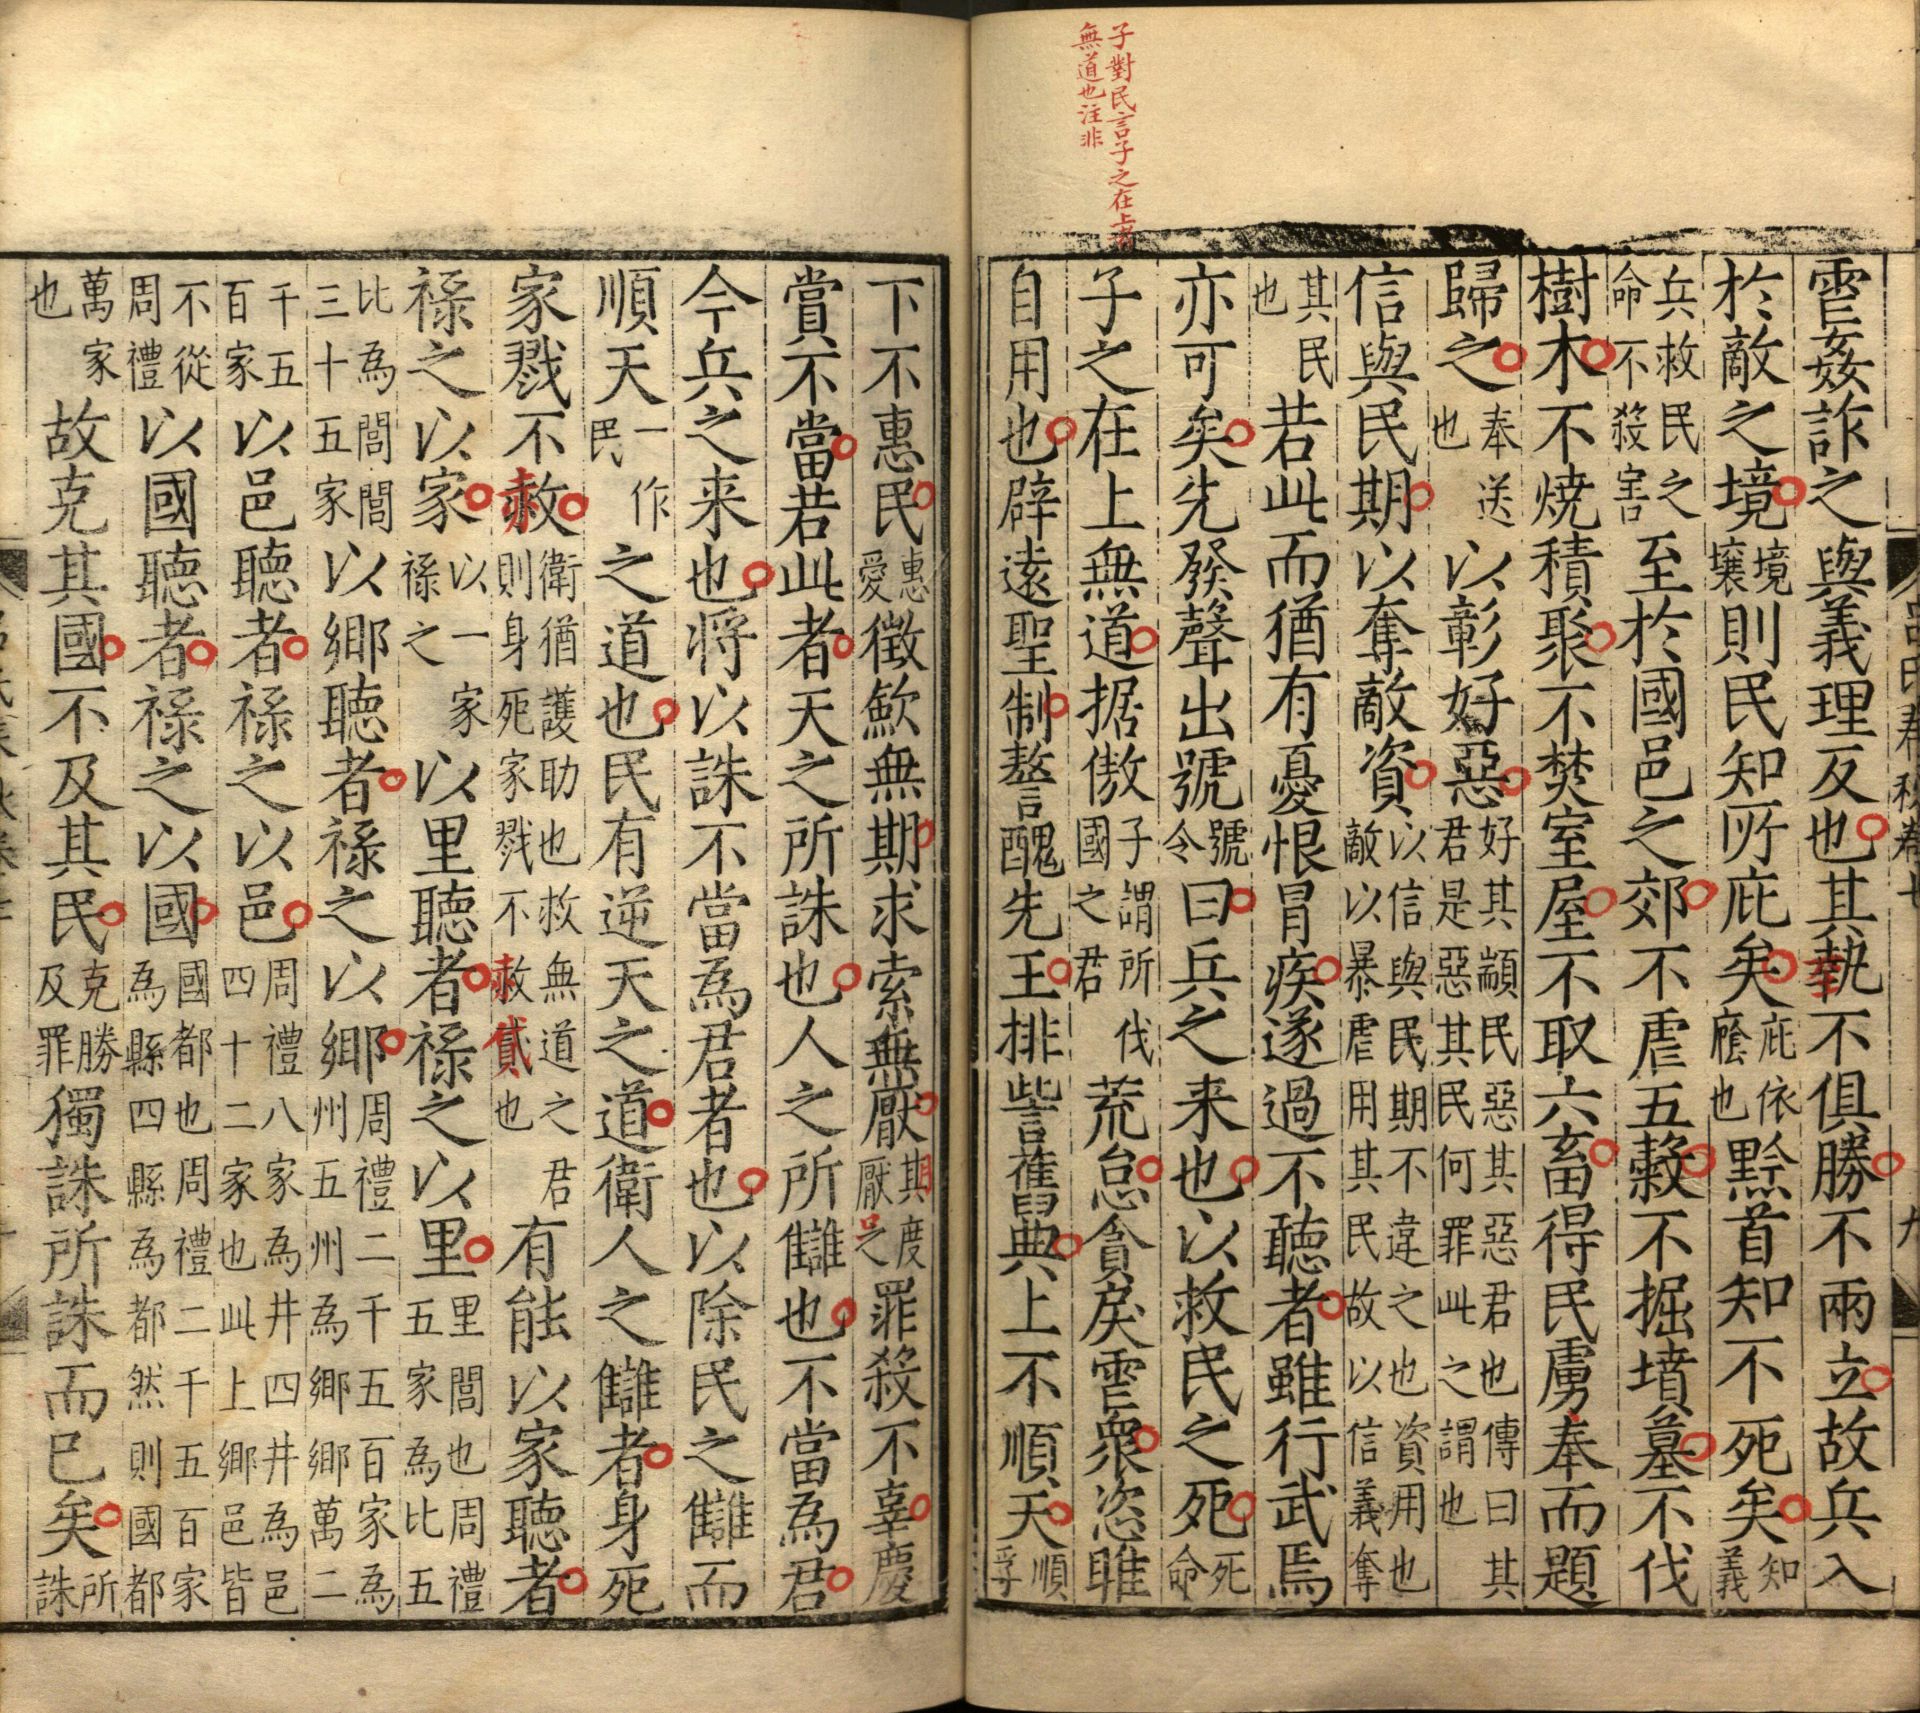 子對民言子之在上者
無道也注非
呂氏春秋卷七 九
虐姦詐之與義理反也其執不俱勝不兩立故兵入
於敵之境境壤則民知所庇矣庇依廕也黔首知不死矣知義
兵救民之命不殺害至於國邑之郊不虐五穀不掘墳墓不伐
樹木不燒積聚不焚室屋不取六畜得民虜奉而題
歸之奉送也以彰好惡好其顓民惡其惡君也傳曰其君是惡其民何罪此之謂也
信與民期以奪敵資以信與民期不違之也資用也敵以暴虐用其民故以信義奪
其民也若此而猶有憂恨冒疾遂過不聽者雖行武焉
亦可矣先發聲出號號令曰兵之来也以救民之死死命
子之在上無道据傲子謂所伐國之君荒怠貪戾虐衆恣睢
自用也辟遠聖制謷醜先王排訾舊典上不順天順孚
下不惠民惠愛徵歛無期求索無厭期度厭足罪殺不辜慶
賞不當若此者天之所誅也人之所讎也不當為君
今兵之来也將以誅不當為君者也以除民之讎而
順天一作民之道也民有逆天之道衛人之讎者身死
家戮不赦衛猶護助也救無道之君則身死家戮不赦貳也有能以家聽者
祿之以家以一家祿之以里聽者祿之以里里閭也周禮五家為比五
比為閭閭三十五家以鄉聽者祿之以鄉周禮二千五百家為州五州為鄉鄉萬二
千五百家以邑聽者祿之以邑周禮八家為井四井為邑四十二家也此上鄉邑皆
不從周禮以國聽者祿之以國國都也周禮二千五百家為縣四縣為都然則國都
萬家也故克其國不及其民克勝及罪獨誅所誅而已矣所誅